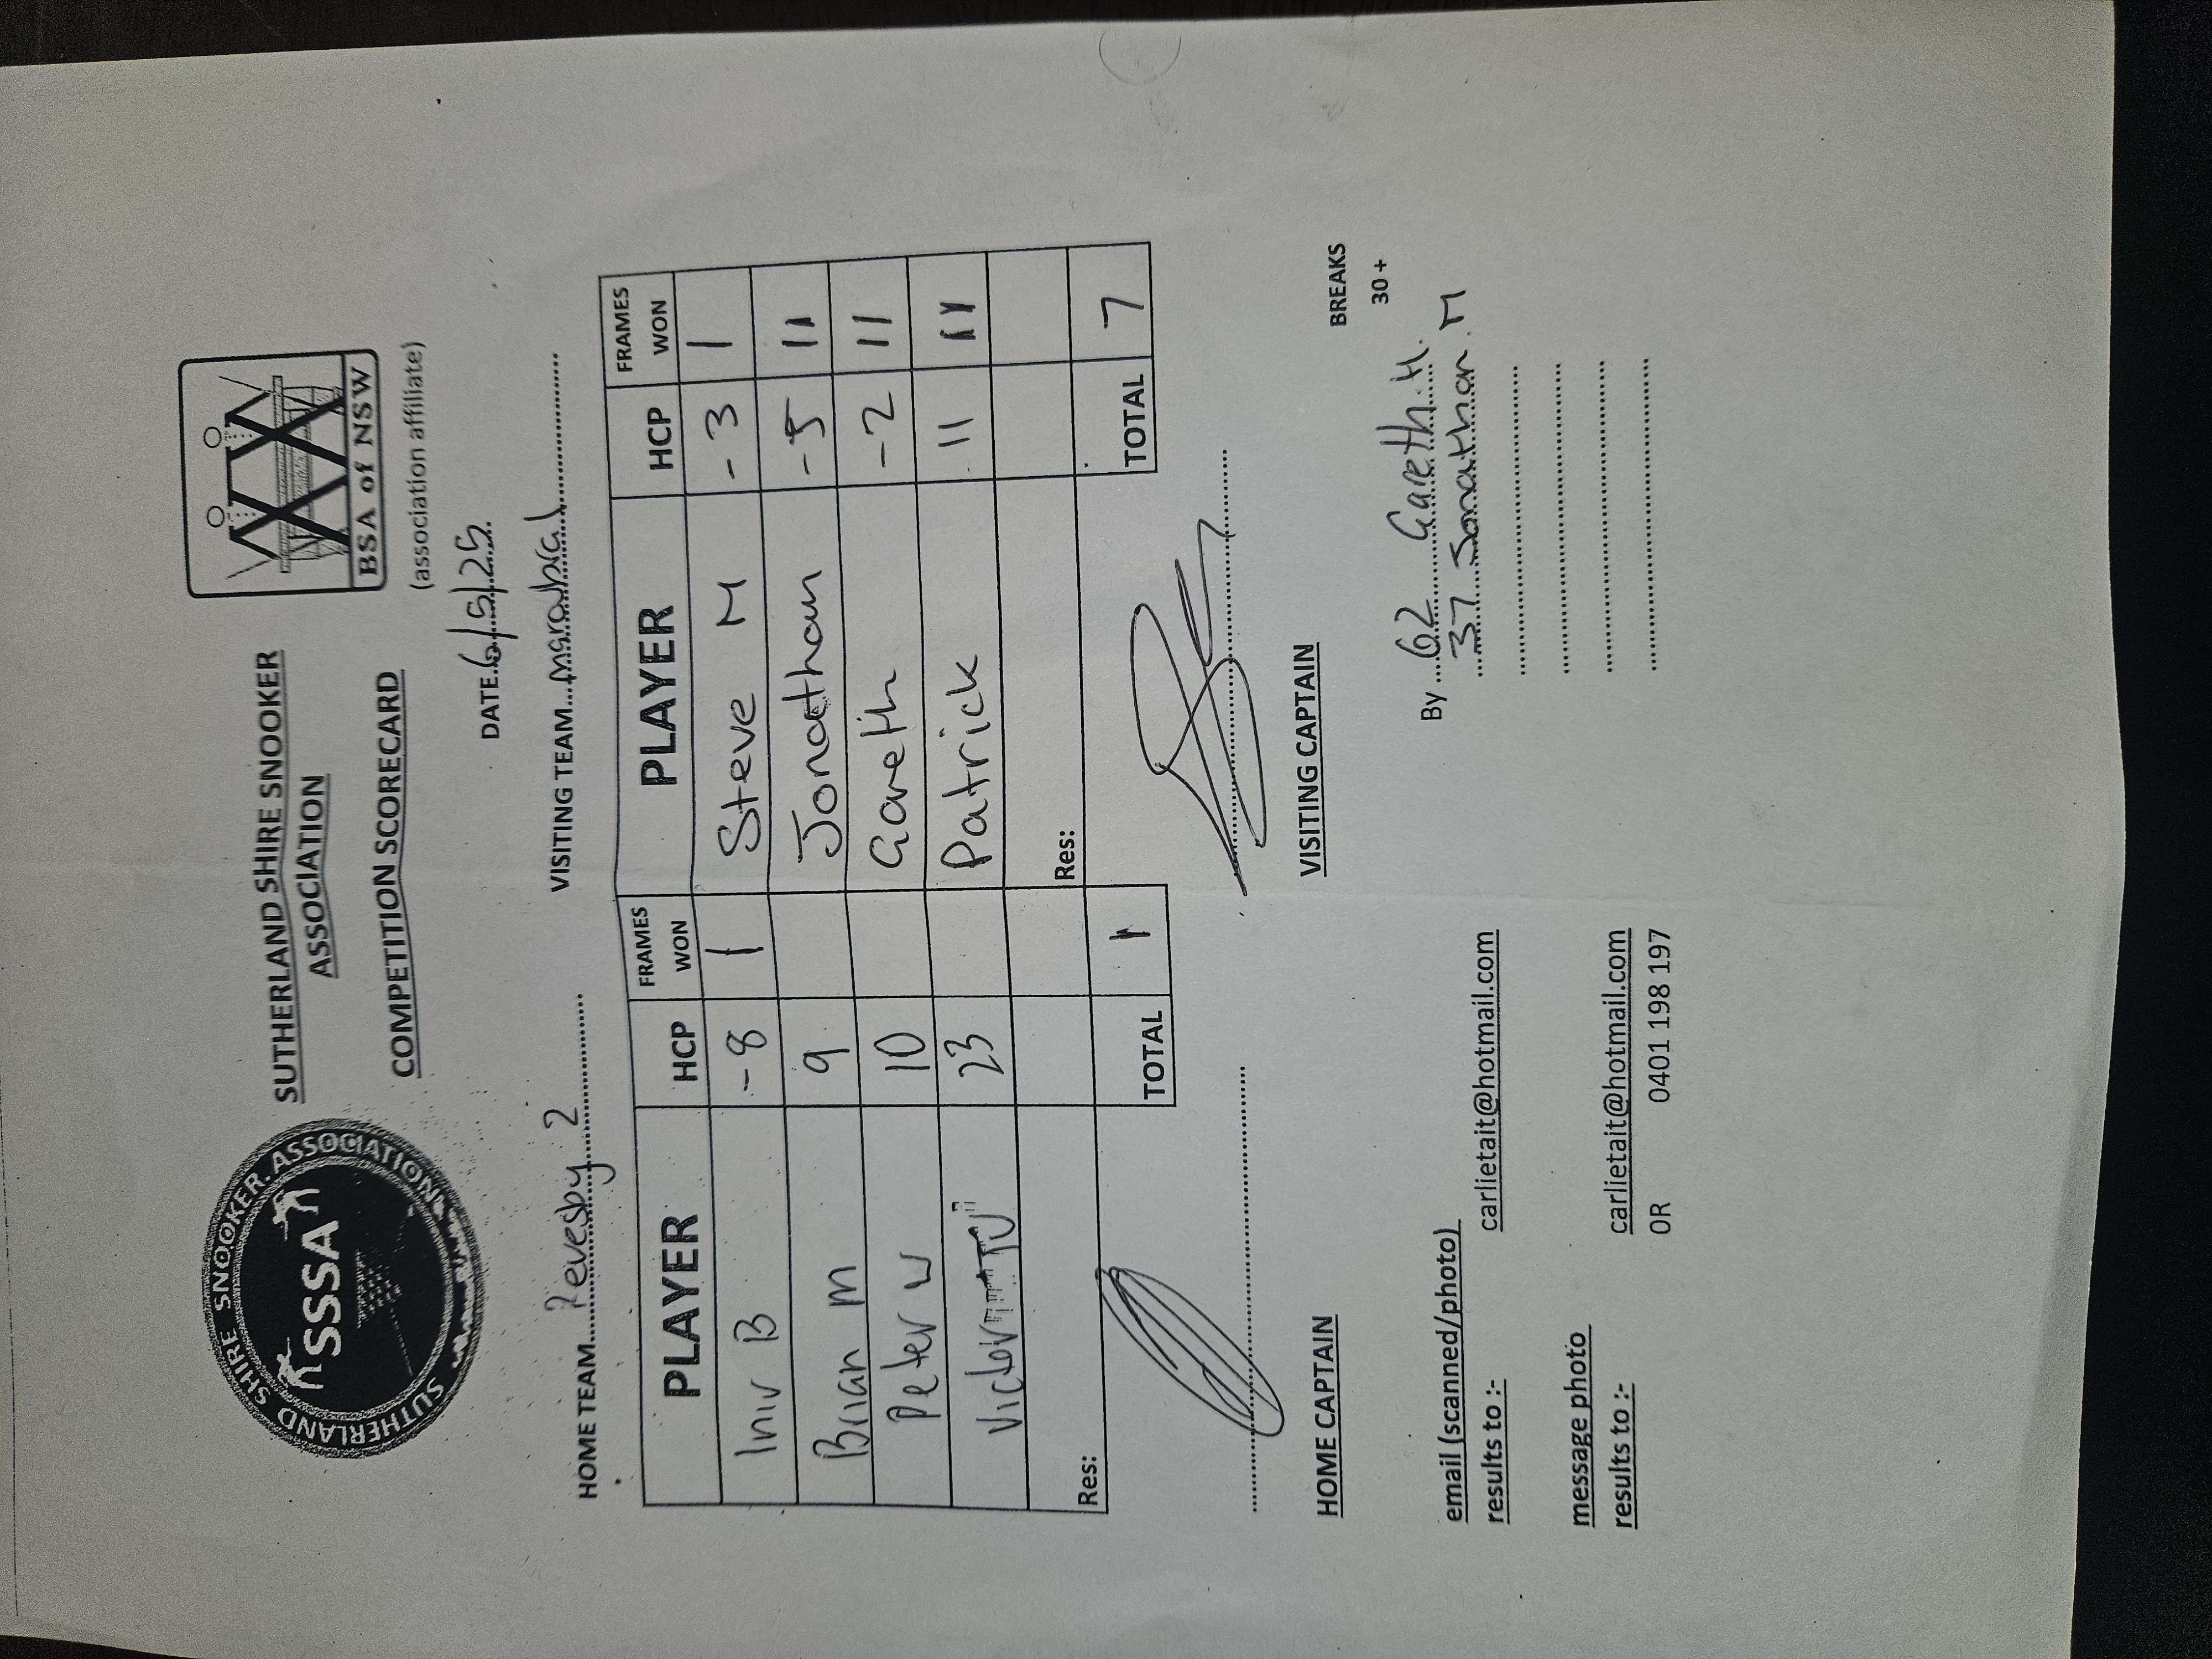 SUTHERLAND SHIRE SNOOKER ASSOCIATION
SSSA
SUTHERLAND SHIRE SNOOKER
ASSOCIATION
COMPETITION SCORECARD
BSA of NSW
(association affiliate)
DATE 6/5/25
HOME TEAM Revesby 2 VISITING TEAM marabra 1
PLAYER HCP FRAMES WON PLAYER HCP FRAMES WON
B -8 1 Steve M -3 1
Brian m 9 Jonathan -5 11
Peter W 10 Gareth -2 11
Victor TU 23 Patrick 11 11
Res: Res:
TOTAL 1 TOTAL 7
HOME CAPTAIN VISITING CAPTAIN
BREAKS
30 +
email (scanned/photo)
results to :- carlietait@hotmail.com
By 62 Gareth. H.
37 Jonathan. M
message photo
results to :- carlietait@hotmail.com
OR 0401 198 197